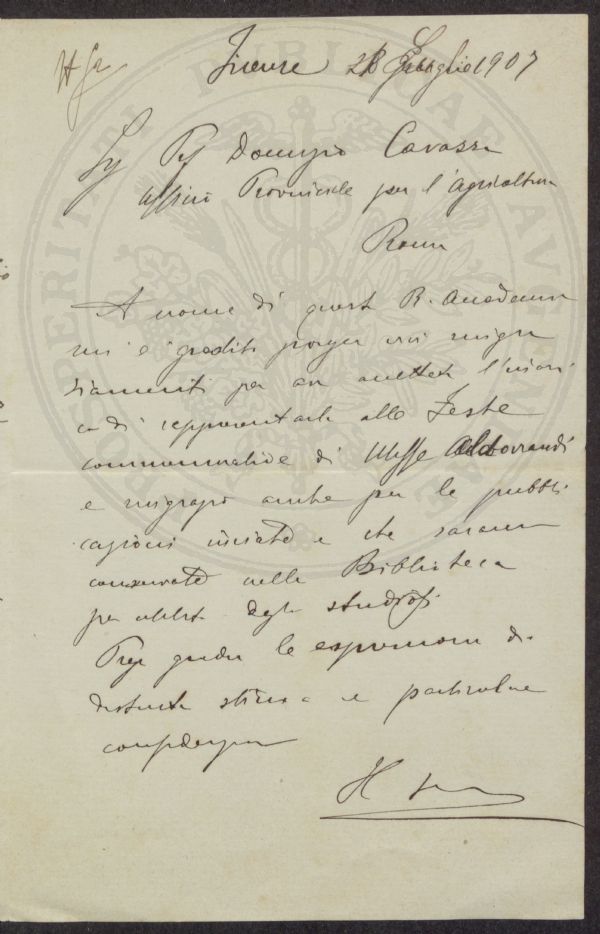 PROSPERITATI PUBLICAE AUGENDAE
Firenze 28 Giuglio 1907
Sg Prof Domizio Cavazza
Ufficio Provinciale per l'Agricoltura
Roma
A nome di questa R. Accademia
mi è gradito porger vivi ringra
ziamenti per aver accettato l'incari
co di rappresentarla alle Feste
commemorative di Ulisse Aldovrandi
e ringrazio anche per le pubbli
cazioni inviate e che saranno
conservate nella Biblioteca
per utilità degli studiosi.
Prego gradire le espressioni di
distinta stima e particolare
considerazione